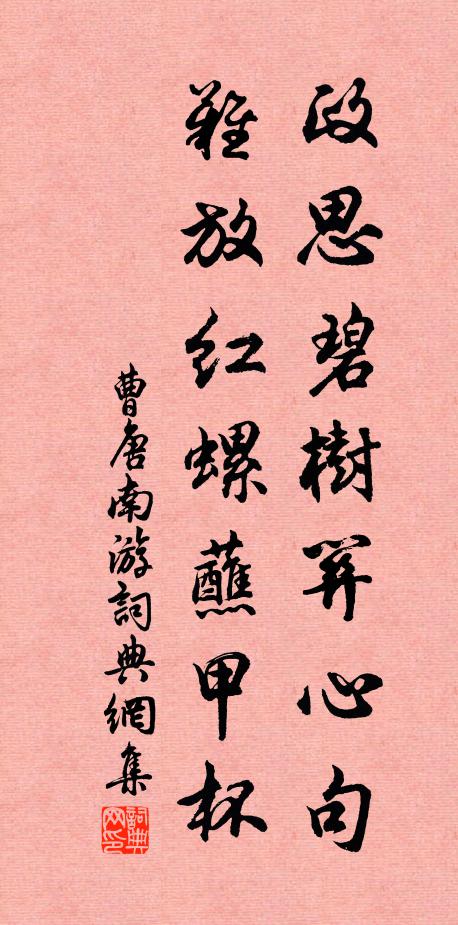 政思碧樹關心句
難放紅螺蘸甲杯
曹唐南游詞典網集
詞典网印